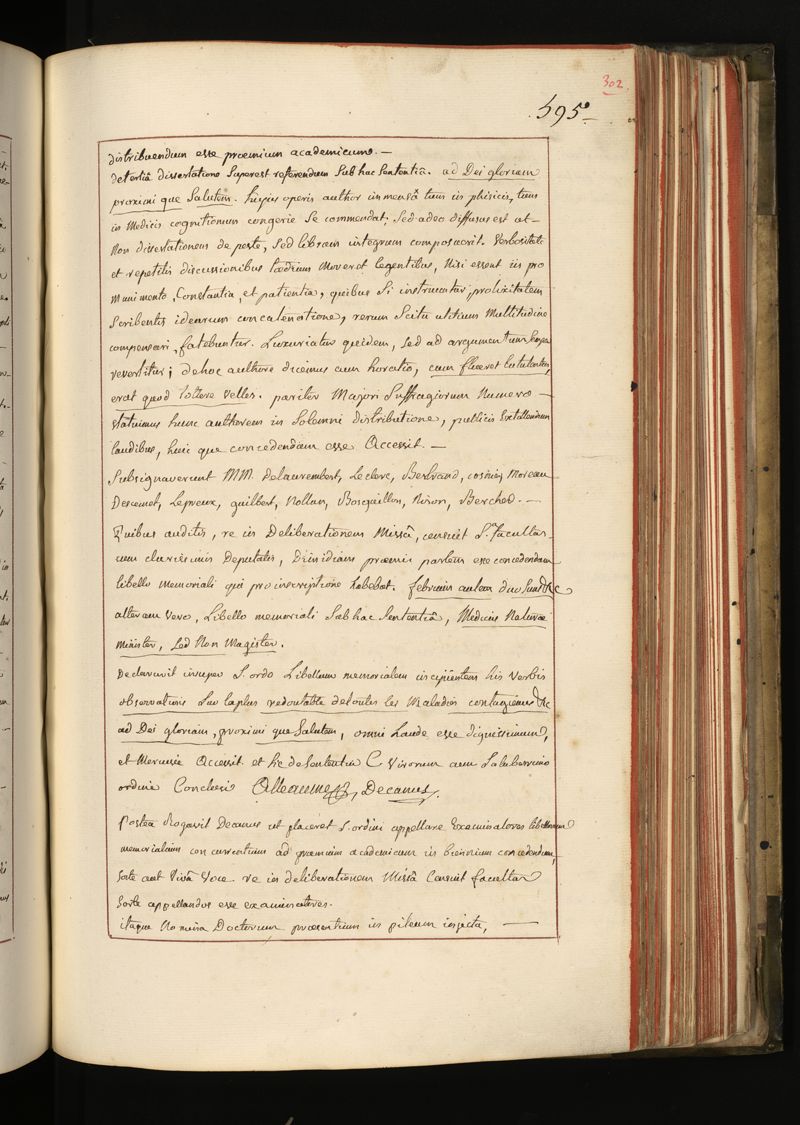 302
595.
distribuendum esse præmium academicum. —
de tertiâ dissertatione Superest referendum Sub hac Sententiâ. ad Dei gloriam
proximi que Salutem. hujus operis author immensâ tum in phisicis, tum
in Medicis cognitionum congerie Se commendat; Sed adeo diffusus est ut
Non dissertationem de peste, Sed librum integrum composuerit. Verbositate
et repetitis discussionibus tædium Moveret legentibus, Nisi essent in pro
Munimento, Constantia, et patientia, quibus Si instruantur, prolixitatem
Scribentis idearum concatenatione, rerum Scitu utilium Multitudine
compensari, fatebuntur. Luxuriatur quidem, Sed ad argumentum Semper
revertitur; de hoc authore dicemus cum horatio, cum flueret lutulentus,
erat quod tollere velles. pariter Majori Suffragiorum Numero —
statuimus hunc authorem in Solemni distributione, publicis Extollendum
laudibus, huic que concedendum esse Accessit. —
Subsignaverunt MM. Delaurembert, Leclerc, Bertrand, cosnier, Moreau
Descemet, Lepreux, guilbert, Nollan, Bosquillon, Piron, Bercher. —
Quibus auditis, re in Deliberationem Missâ, censuit S. facultas
cum clarissimis Deputatis, Dimidiam præmii partem esse concedendam
libello Memoriali qui pro inscriptione habebat. febrium autem duo Sunt &c
alteram vero, Libello memoriali Sub hac Sententiâ, Medicus Naturæ
minister, Sed Non Magister.
Declaravit insuper S. ordo Libellum memorialem incipientem his Verbis
observations Sur la plus redoutable de toutes les Maladies contagieuses &c
ad Dei gloriam, proximi que Salutem, omni Laude esse dignissimum,
et Meruisse Accessit et hc de Sententia C Virorum cum Saluberrimo
ordine Conclusi Alleaume, Decanus.
Postea Rogavit Decanus ut placeret S. ordini appellare Examinatores libellorum
memorialium concurrentium ad præmium academicum in biennium concedendum,
Sorte aut Vivâ Voce. re in deliberationem Missâ Censuit facultas
Sorte appellandos esse examinatores.
itaque Nomina Doctorum præsentium in pileum injecta, —